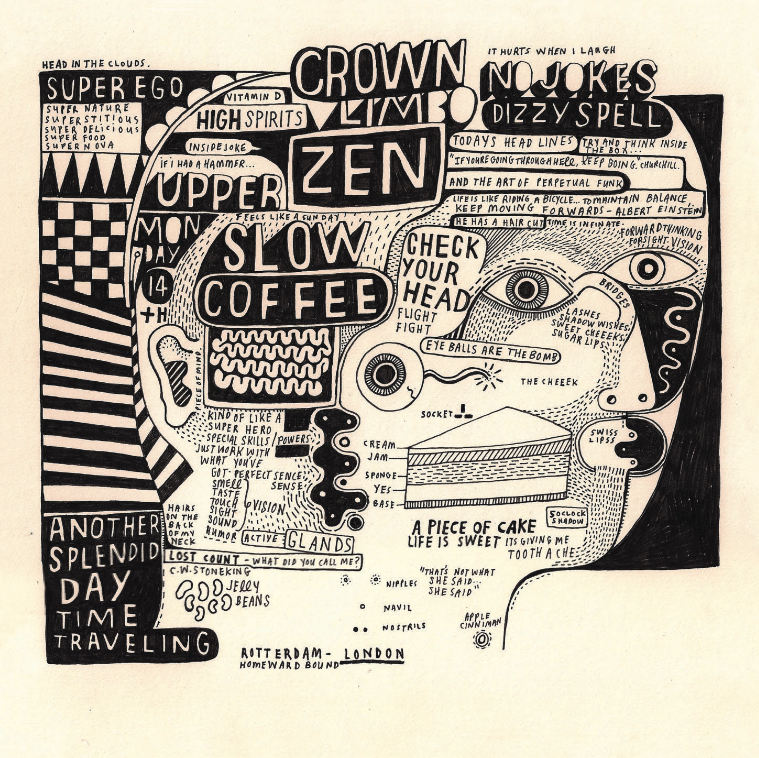 HEAD IN THE CLOUDS.
SUPER EGO
SUPER NATURE
SUPERSTITIOUS
SUPER DELICIOUS
SUPER FOOD
SUPERNOVA
CROWN
LIMBO
IT HURTS WHEN I LAUGH
NO JOKES
DIZZY SPELL
VITAMIN D
HIGH SPIRITS
INSIDE JOKE
IF I HAD A HAMMER...
UPPER
ZEN
TODAYS HEAD LINES
TRY AND THINK INSIDE
THE BOX...
"IF YOU'RE GOING THROUGH HELL, KEEP GOING". CHURCHILL.
AND THE ART OF PERPETUAL FUNK
LIFE IS LIKE RIDING A BICYCLE... TO MAINTAIN BALANCE
KEEP MOVING FORWARDS - ALBERT EINSTEIN
HE HAS A HAIR CUT
TIME IS INFINATE.
FORWARD THINKING
FORSIGHT. VISION
MON
DAY
14
+H
FEELS LIKE A SUNDAY
SLOW
COFFEE
CHECK
YOUR
HEAD
FLIGHT
FIGHT
BRIDGE
LASHES
SHADOW WISHES
SWEET CHEEEKS
SUGAR LIPS
EYE BALLS ARE THE BOMB
THE CHEEEK
PIECE OF MIND.
SOCKET
CREAM
JAM
SPONGE
YES
BASE
SWISS
LIPSS
5 OCLOCK
SHADOW
KIND OF LIKE A
SUPER HERO
SPECIAL SKILLS / POWERS
JUST WORK WITH
WHAT YOU'VE
GOT - PERFECT SENSE
SMELL SENSE
TASTE
TOUCH
SIGHT
SOUND
HUMOR
VISION
ACTIVE GLANDS
A PIECE OF CAKE
LIFE IS SWEET ITS GIVING ME
TOOTH ACHE
HAIRS
ON THE
BACK
OF MY
NECK
LOST COUNT - WHAT DID YOU CALL ME?
C.W. STONEKING
JELLY
BEANS
ANOTHER
SPLENDID
DAY
TIME
TRAVELING
NIPPLES
NAVIL
NOSTRILS
"THAT'S NOT WHAT
SHE SAID...
SHE SAID"
APPLE
CINNIMAN
ROTTERDAM - LONDON
HOMEWARD BOUND